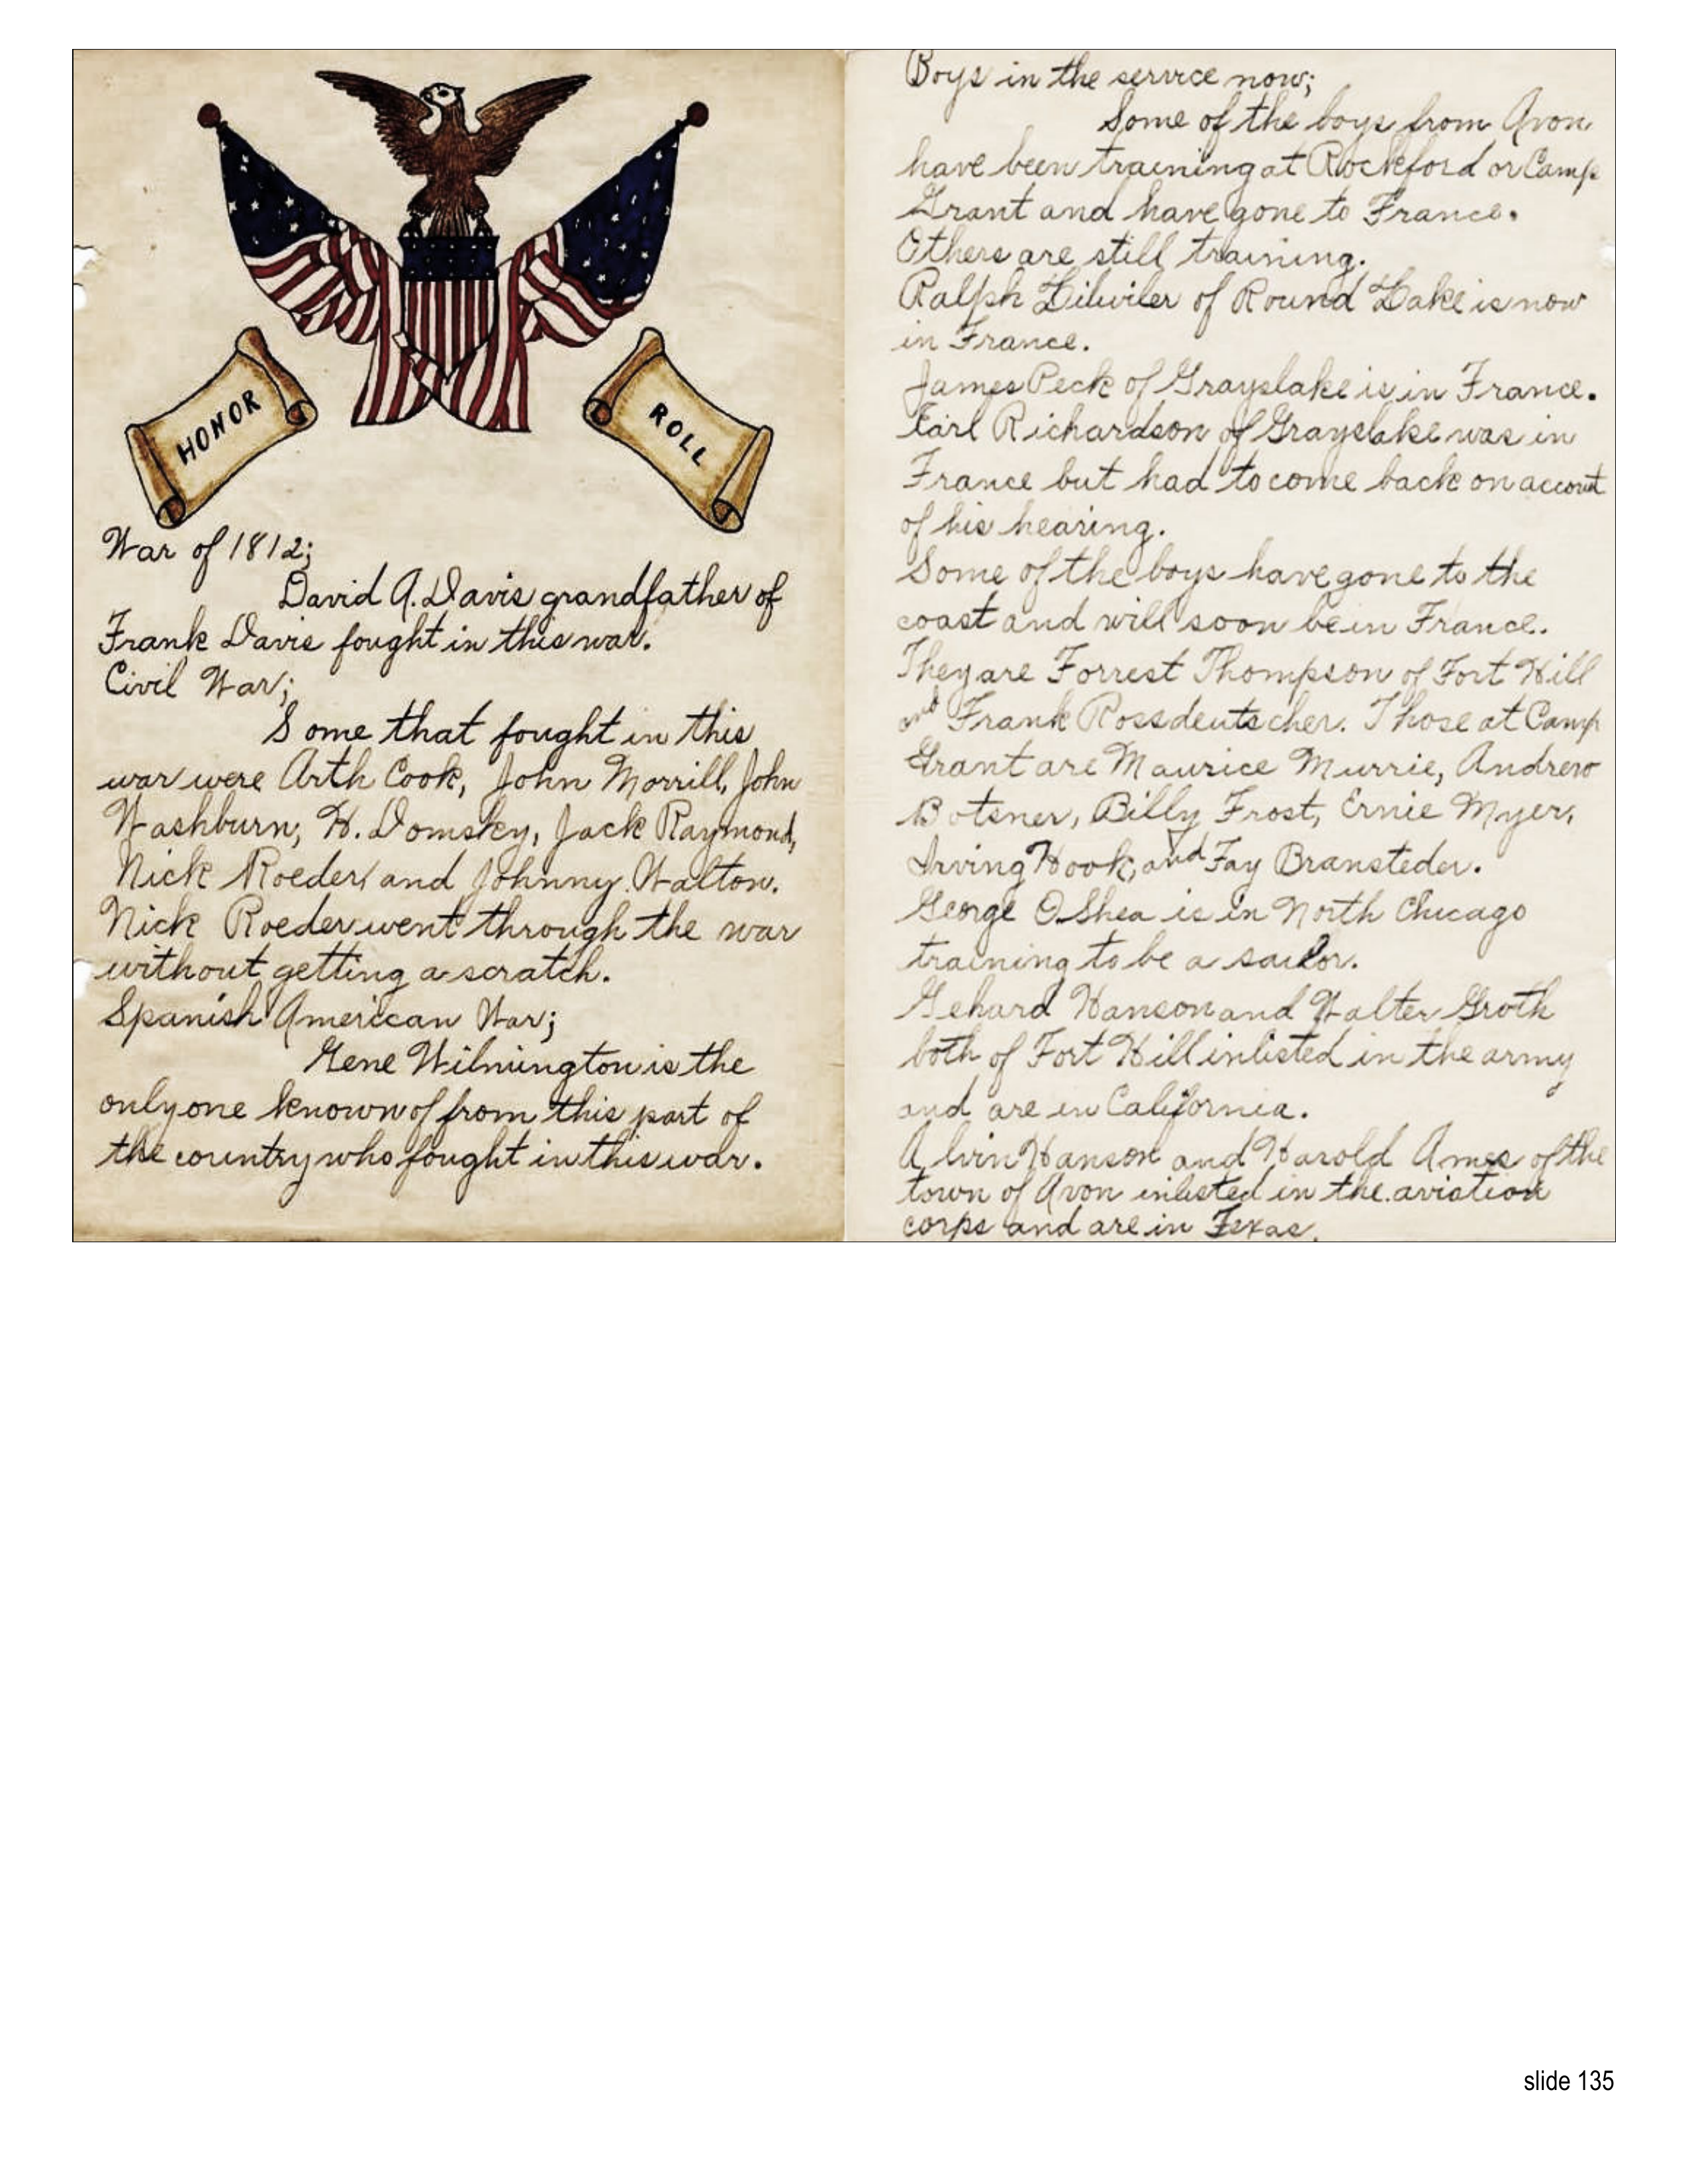 HONOR
ROLL
War of 1812;
David A. Davis grandfather of
Frank Davis fought in this war.
Civil War;
Some that fought in this
war were Arth Cook, John Morrill, John
Washburn, H. Domsky, Jack Raymond,
Nick Roeder and Johnny Walton.
Nick Roeder went through the war
without getting a scratch.
Spanish American War;
Gene Wilmington is the
only one known of from this part of
the country who fought in this war.
Boys in the service now;
Some of the boys from Avon
have been training at Rockford or Camp
Grant and have gone to France.
Others are still training.
Ralph Litwiler of Round Lake is now
in France.
James Peck of Grayslake is in France.
Earl Richardson of Grayslake was in
France but had to come back on account
of his hearing.
Some of the boys have gone to the
coast and will soon be in France.
They are Forrest Thompson of Fort Hill
and Frank Rossdeutscher. Those at Camp
Grant are Maurice Murrie, Andrew
Botsner, Billy Frost, Ernie Myer,
Irving Hook, and Fay Bransteder.
George O Shea is in North Chicago
training to be a sailor.
Gehard Hanson and Walter Groth
both of Fort Hill inlisted in the army
and are in California.
Alvin Hanson and Harold Ames of the
town of Avon inlisted in the aviation
corps and are in Texas.
slide 135